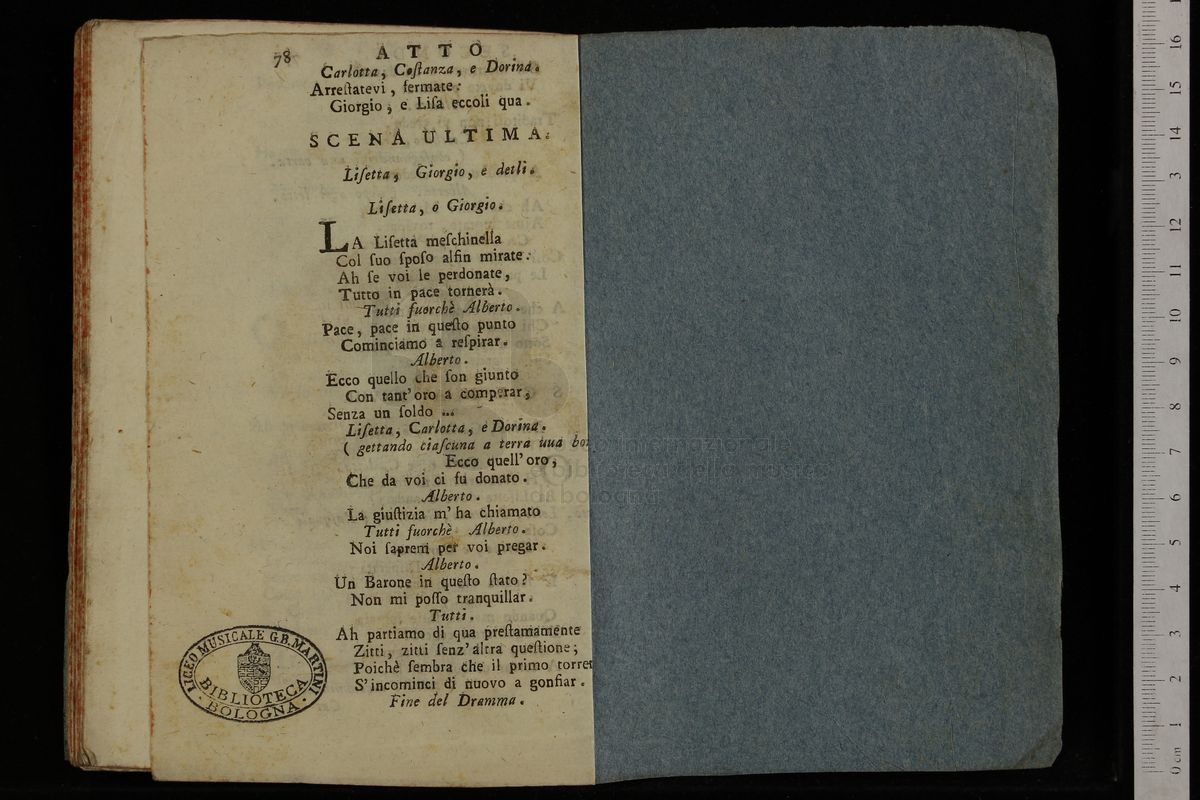 78
ATTO
Carlotta, Coſtanza, e Dorina.
Arreſtatevi, fermate:
Giorgio, e Liſa eccoli qua.
SCENA ULTIMA.
Liſetta, Giorgio, e detli.
Liſetta, o Giorgio.
LA Liſetta meſchinella
Col ſuo ſpoſo alfin mirate:
Ah ſe voi le perdonate,
Tutto in pace tornerà.
Tutti fuorchè Alberto.
Pace, pace in queſto punto
Cominciamo a reſpirar.
Alberto.
Ecco quello che ſon giunto
Con tant' oro a comperar,
Senza un ſoldo ...
Liſetta, Carlotta, e Dorina.
( gettando ciaſcuna a terra uua
Ecco quell' oro,
Che da voi ci fu donato.
Alberto.
La giuſtizia m' ha chiamato
Tutti fuorchè Alberto.
Noi ſaprem per voi pregar.
Alberto.
Un Barone in queſto ſtato?
Non mi poſſo tranquillar.
Tutti.
Ah partiamo di qua preſtamamente
Zitti, zitti ſenz' altra queſtione;
Poichè ſembra che il primo
S' incominci di nuovo a gonfiar.
Fine del Dramma.
LICEO MUSICALE G.B. MARTINI
BIBLIOTECA
BOLOGNA
16
15
14
13
12
11
10
9
8
7
6
5
4
3
2
1
0 cm